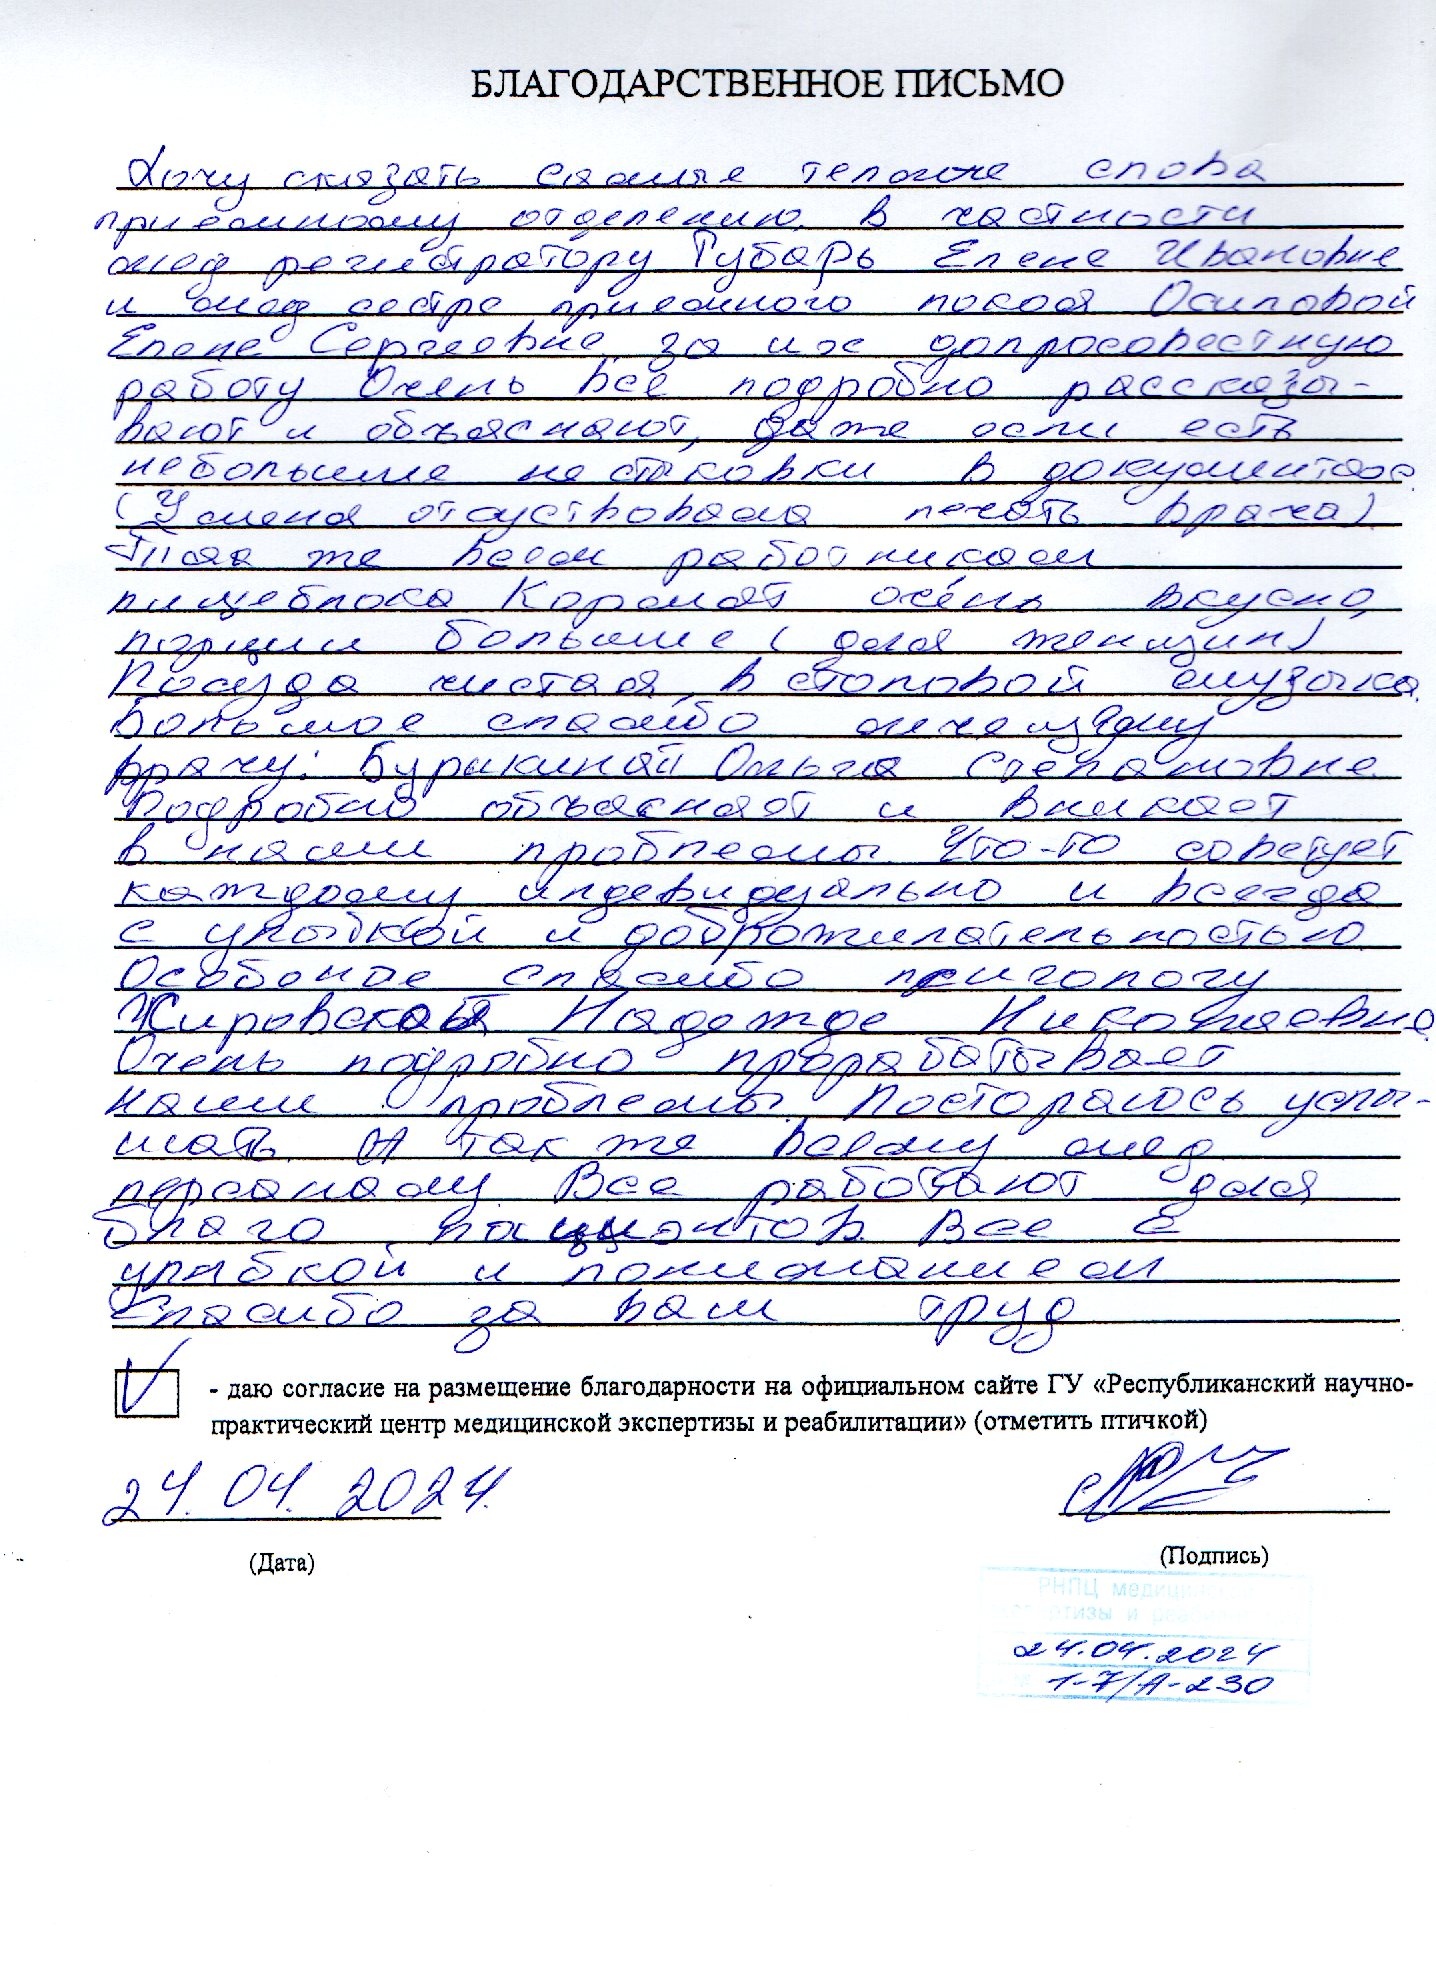 БЛАГОДАРСТВЕННОЕ ПИСЬМО
Хочу сказать самые теплые слова
приемному отделению. В частности
мед регистратору Губарь Елене Ивановне
и мед сестре приемного покоя Осиповой
Елене Сергеевне за их допросовестную
работу Очень все подробно рассказы-
вают и объясняют, даже если есть
небольшие нестыковки в документах
(У меня отсуствовала печать врача)
Так же всем работникам
пищеблока Кормят очень вкусно,
порции большие (для женщин)
Посуда чистая, в столовой музыка.
Большое спасибо лечащему
врачу: Буракиной Ольга Степановне
Подробно объясняет и вникает
в наши проблемы Что-то советует
каждому индевидуально и всегда
с улыбкой и доброжилательностью
Особеное спасибо психологу
Жировской Надежде Николаевне
Очень подробно прорабатывает
наши проблемы. Посторалось услы-
шать. А так же всему мед
персаналу Все работают для
благо пациэнтов. Все с
улыбкой и пониманием
Спасибо за ваш труд
V - даю согласие на размещение благодарности на официальном сайте ГУ «Республиканский научно-
практический центр медицинской экспертизы и реабилитации» (отметить птичкой)
24.04.2024.
(Дата) (Подпись)
РНПЦ медицинской
экспертизы и реабилитации
24.04.2024
№ 1-7/А-230